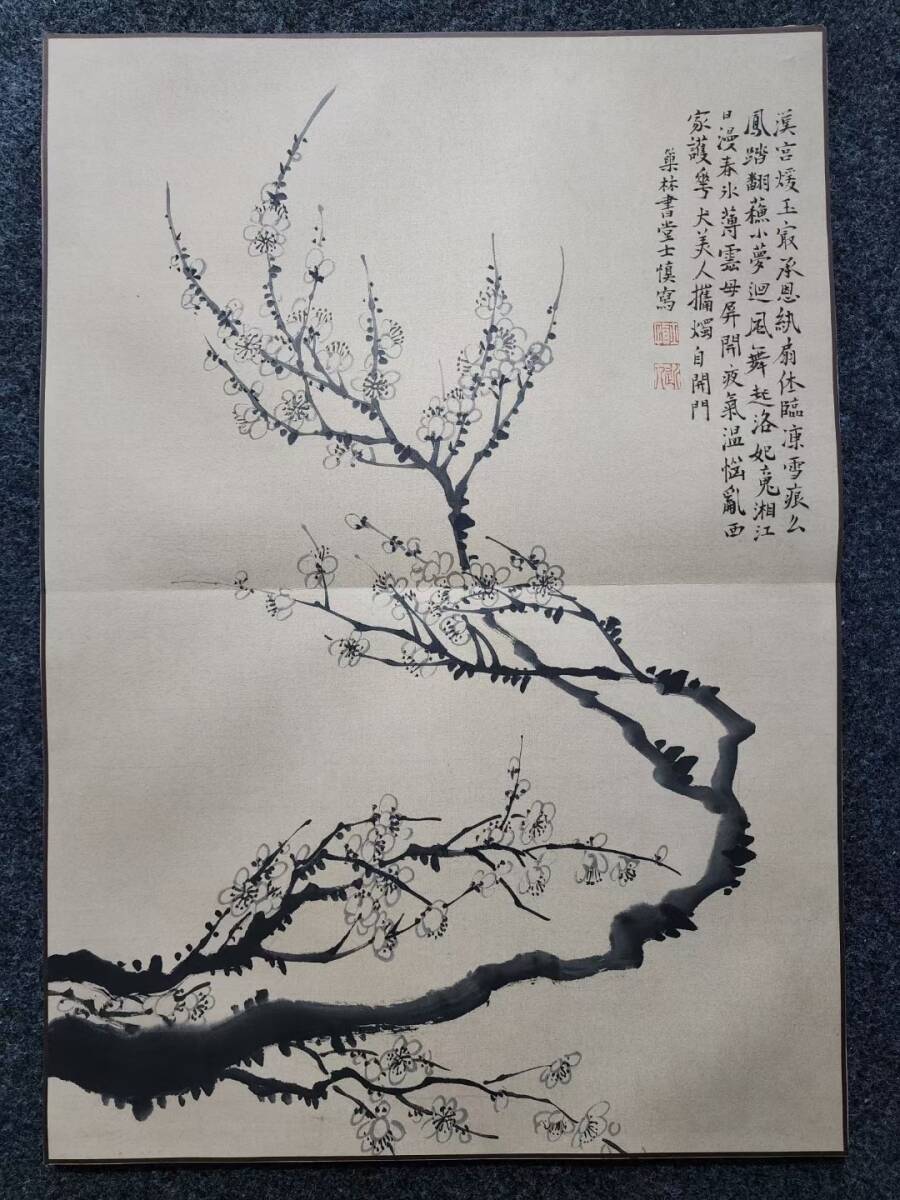 漢宮煖玉㝡承恩紈扇休臨凍雪痕么
鳳踏翻蘸小夢迴風舞起洛妃魂湘江
日漫春冰薄雲母屏開夜氣温惱亂西
家護華犬美人攜燭自開門
巢林書堂士慎寫